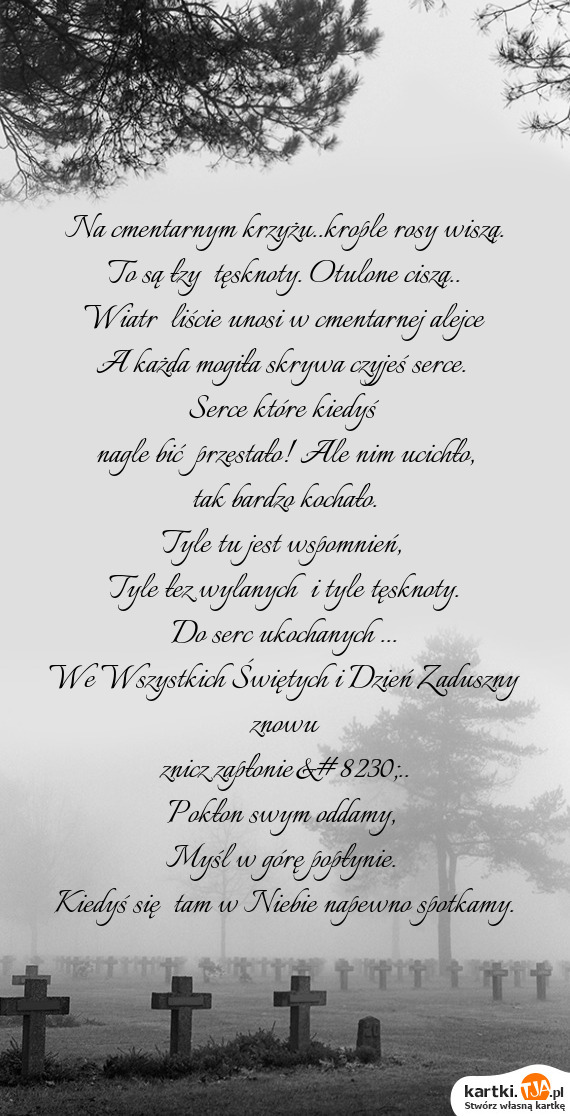 Na cmentarnym krzyżu..krople rosy wiszą.
To są łzy  tęsknoty. Otulone ciszą..
Wiatr  liście unosi w cmentarnej alejce
A każda mogiła skrywa czyjeś serce.
Serce które kiedyś
nagle bić  przestało! Ale nim ucichło,
tak bardzo kochało.
Tyle tu jest wspomnień,
Tyle łez wylanych  i tyle tęsknoty.
Do serc ukochanych ...
We Wszystkich Świętych i Dzień Zaduszny
znowu
znicz zapłonie &# 8230;..
Pokłon swym oddamy,
Myśl w górę popłynie.
Kiedyś się  tam w Niebie napewno spotkamy.
kartki.TJA.pl
Stwórz własną kartkę